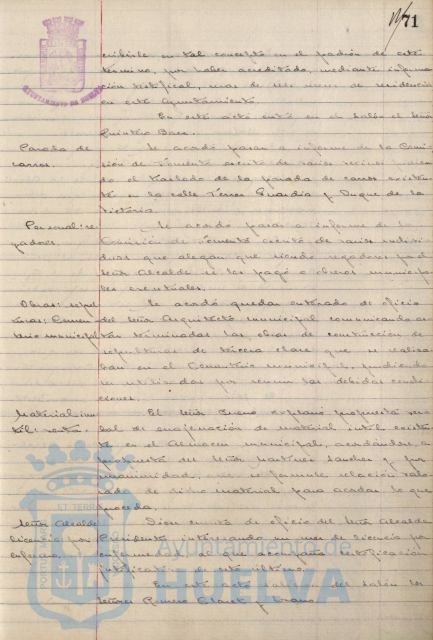 71
cribirle en tal concepto en el padrón de este
término, por haber acreditado, mediante informa-
ción testifical, mas de seis meses de residencia
en este Ayuntamiento.
En este acto entró en el salón el Señor
Quintero Baez.
Parada de carros.
Se acordó pasar a informe de la Comi-
sión de Fomento escrito de varios vecinos
do el traslado de la parada de carros existen-
te en la calle Torres Guardia y Duque de la
Victoria.
Personal: re-
gadores.
Se acordó pasar a informe de la
Comisión de Fomento escrito de varios indivi-
duos que alegan que siendo regadores
Señor Alcalde se les pagó a obreros municipa-
les eventuales.
Obras: sepul-
turas: Cemen-
terio municipal
Se acordó quedar enterado de oficio
del Señor Arquitecto municipal comunicando es-
tán terminadas las obras de construcción de
sepulturas de tercera clase que se realiza-
ban en el Cementerio municipal, pudiendo
ser utilizadas por reunir las debidas condi-
ciones.
Material inu-
til: venta.
El Señor expresó propuesta ver-
bal de enajenación de material inútil existen-
te en el Almacen municipal, acordándose, a
propuesta del Señor Martinez Sanchez y por
unanimidad, que se formule relación valo-
rada de dicho material para acordar lo que
proceda.
Señor Alcalde
licencia por
enfermo.
Dióse cuenta de oficio del Señor Alcalde
Presidente interesando un mes de licencia por
enfermo, al que acompaña certificación
justificativa de este último.
En este acto salieron del salón los
Señores Claret y
ST TERRÆ
Ayuntamiento de
HUELVA